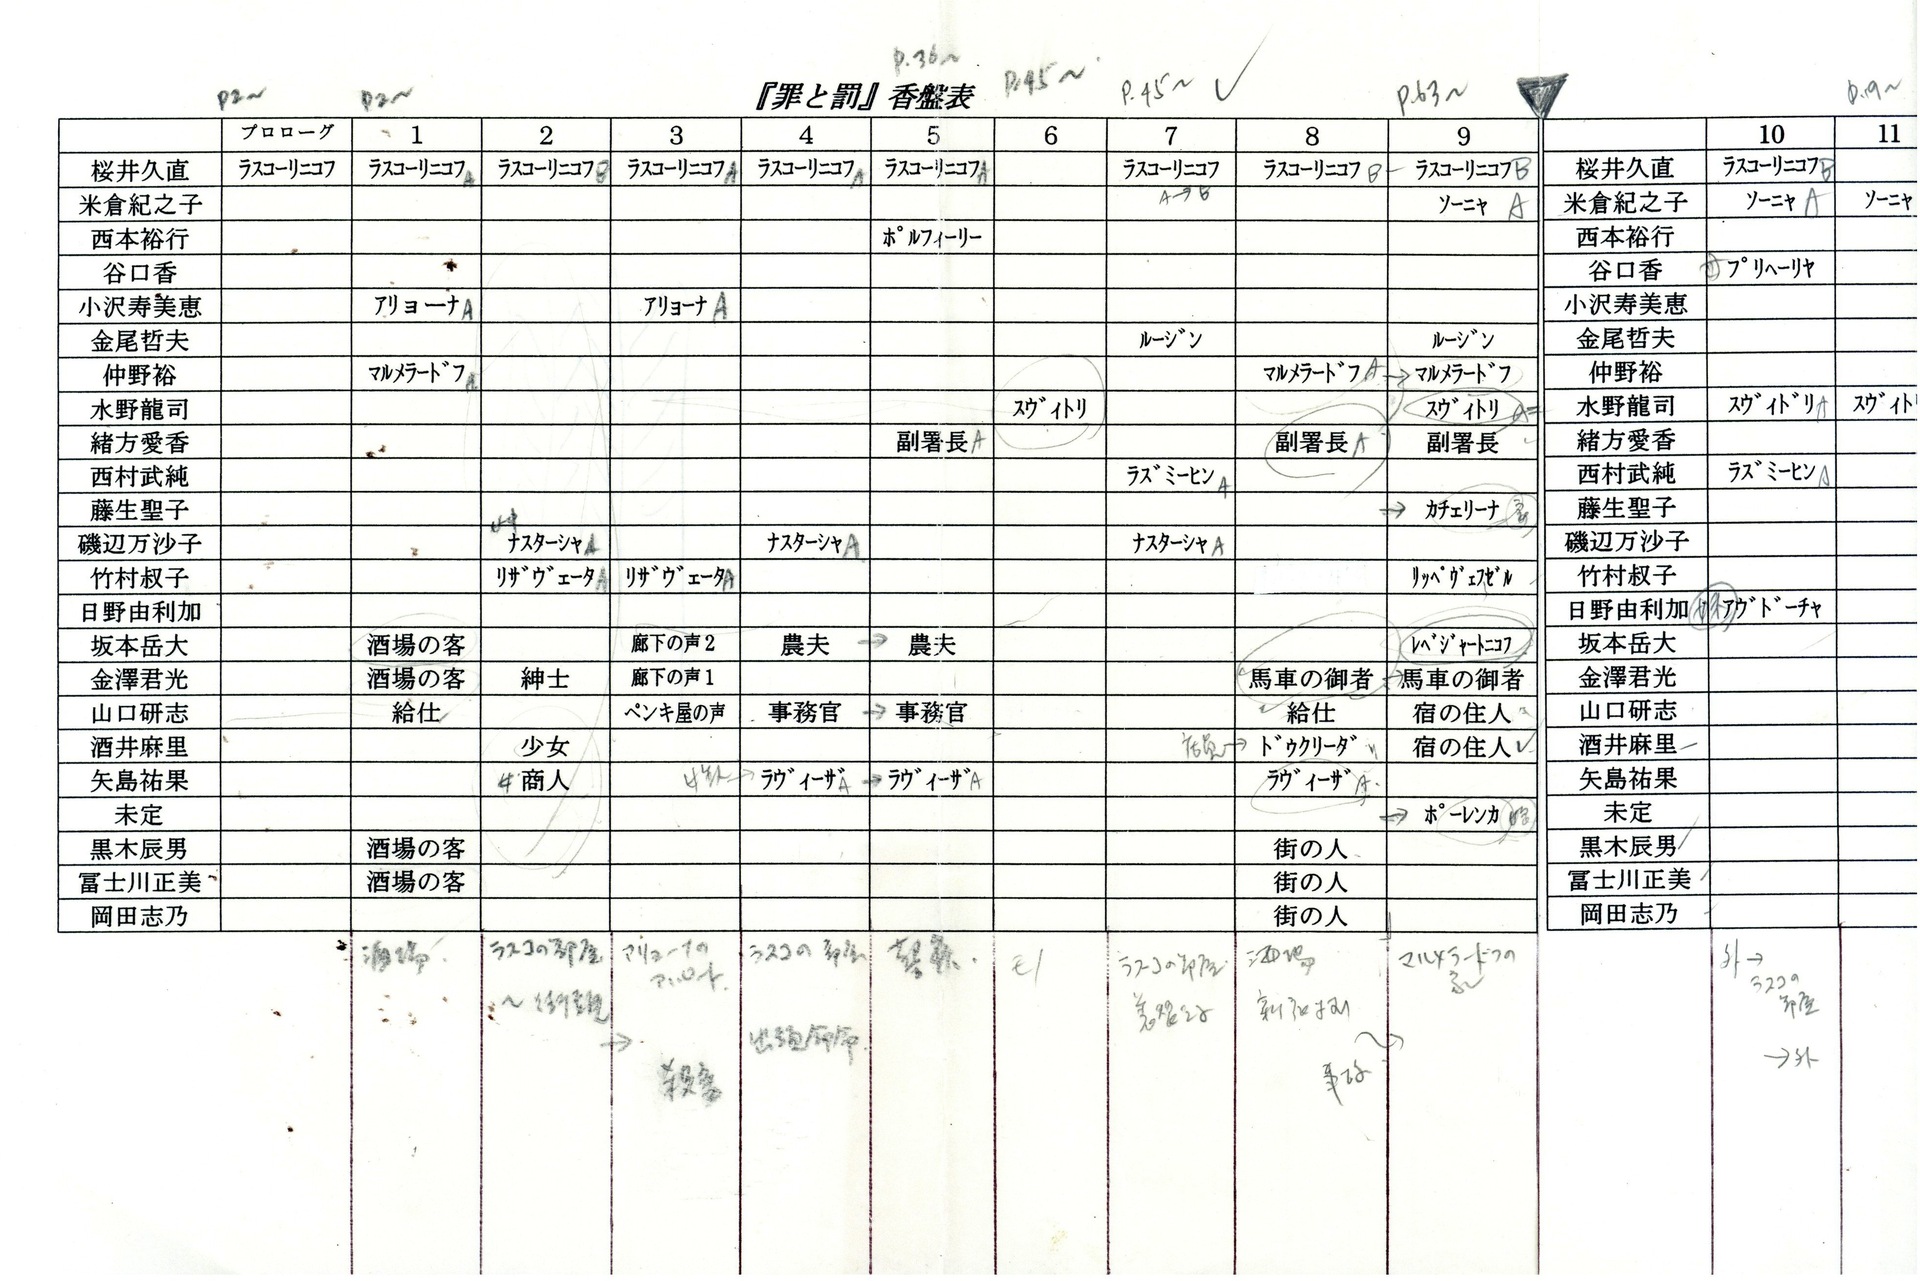 p2~ p2~ p.36~ p.45~ p.45~ p.63~ p.19~
『罪と罰』香盤表
プロローグ 1 2 3 4 5 6 7 8 9 10 11
桜井久直 ラスコーリニコフ ラスコーリニコフA ラスコーリニコフB ラスコーリニコフA ラスコーリニコフA ラスコーリニコフA ラスコーリニコフ ラスコーリニコフB ラスコーリニコフB 桜井久直 ラスコーリニコフB
A→B
米倉紀之子 ソーニャ A 米倉紀之子 ソーニャA ソーニャ
西本裕行 ポルフィーリー 西本裕行
谷口香 谷口香 プリヘーリヤ
小沢寿美恵 アリョーナA アリョーナA 小沢寿美恵
金尾哲夫 ルージン ルージン 金尾哲夫
仲野裕 マルメラードフA マルメラードフA→ マルメラードフ 仲野裕
水野龍司 スヴィトリ スヴィトリA 水野龍司 スヴィドリA スヴィト
緒方愛香 副署長A 副署長A 副署長 緒方愛香
西村武純 ラズミーヒンA 西村武純 ラズミーヒンA
藤生聖子 → カチェリーナ 藤生聖子
磯辺万沙子 ナスターシャA ナスターシャA ナスターシャA 磯辺万沙子
竹村叔子 リザヴェータA リザヴェータA リッペヴェフゼル 竹村叔子
日野由利加 日野由利加 アヴドーチャ
坂本岳大 酒場の客 廊下の声2 農夫 → 農夫 レベジャートニコフ 坂本岳大
金澤君光 酒場の客 紳士 廊下の声1 馬車の御者 馬車の御者 金澤君光
山口研志 給仕 ペンキ屋の声 事務官 → 事務官 給仕 宿の住人 山口研志
酒井麻里 少女 → ドゥクリーダ 宿の住人 酒井麻里
矢島祐果 商人 → ラヴィーザA → ラヴィーザA ラヴィーザA 矢島祐果
未定 → ポーレンカ 未定
黒木辰男 酒場の客 街の人 黒木辰男
冨士川正美 酒場の客 街の人 冨士川正美
岡田志乃 街の人 岡田志乃
酒場 ラスコの部屋 アリョーナの ラスコの部屋 ラスコの部屋 酒場 マルメラードフの 外→
アパート 家 ラスコの
部屋
→ →外
殺害 事故